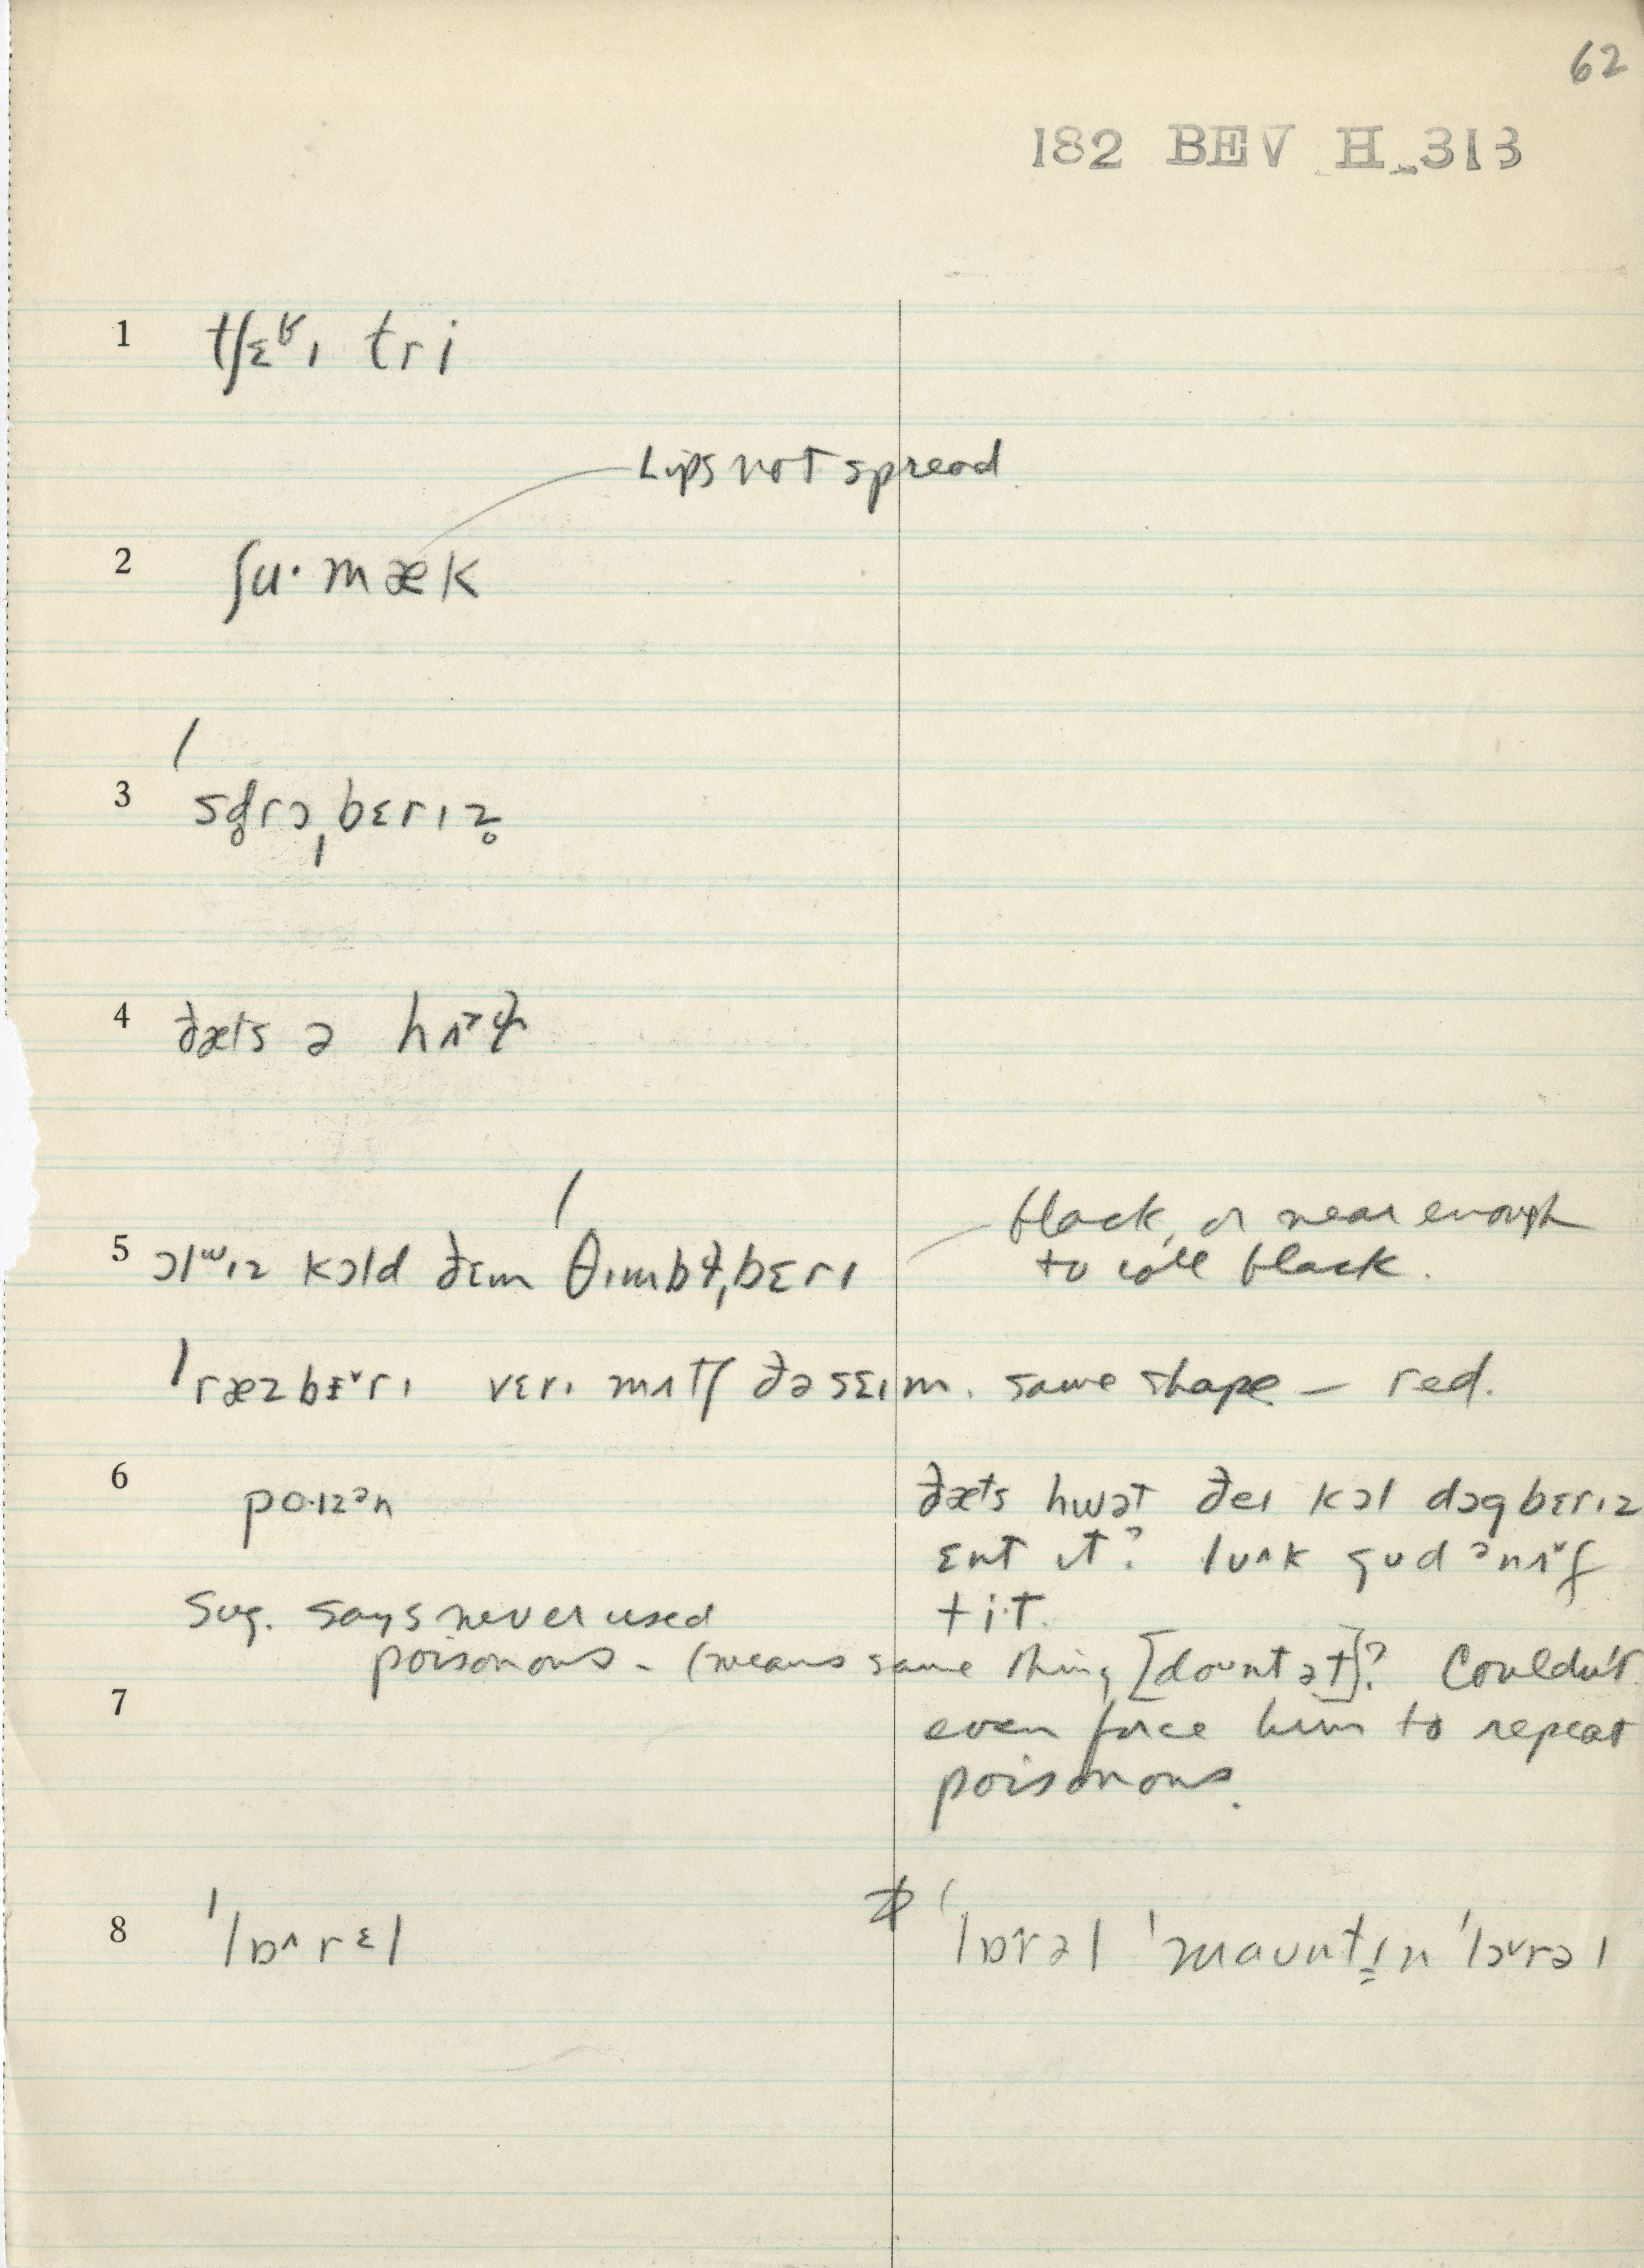 62
182 BEV H 313
1 tʃɛʳɪ tri
Lips not spread
2 ʃu·mæk
3 ˈsd̥rɔˌbɛrɪz̥
4 ðæts ə
5 ɔlʷɪz kɔld ðɛm ˈθɪmbɫ̩ˌbɛrɪ black, or near enough
to call black.
ˈræzbɛ˅rɪ vɛrɪ mʌtʃ ðə sɛɪm. same shape – red.
6 po·ɪzᵊn ðæts hwət ðeɪ kɔl dɔgbɛrɪz
ɛnt ɪt? lʊ˄k gʊd ᵊnʌ˅f
t i·t.
Sug. says never used
poisonous – (means same thing [doʊnt ət]? Couldn't
7 even force him to repeat
poisonous.
8 ˈlɒ˄rɛl ˈlɒrəl ˈmaʊnt̩ɪn ˈlɔ˅rəl